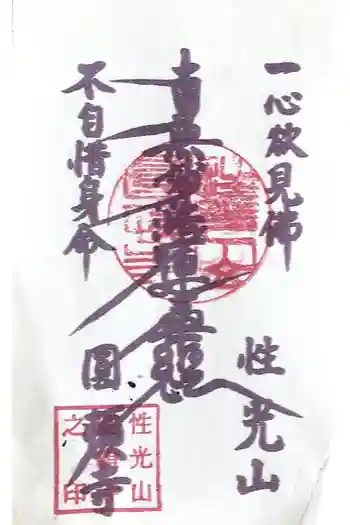 一心欲見佛
性光山
南無妙法蓮華經
不自惜身命
圓
寺
性光山
之印